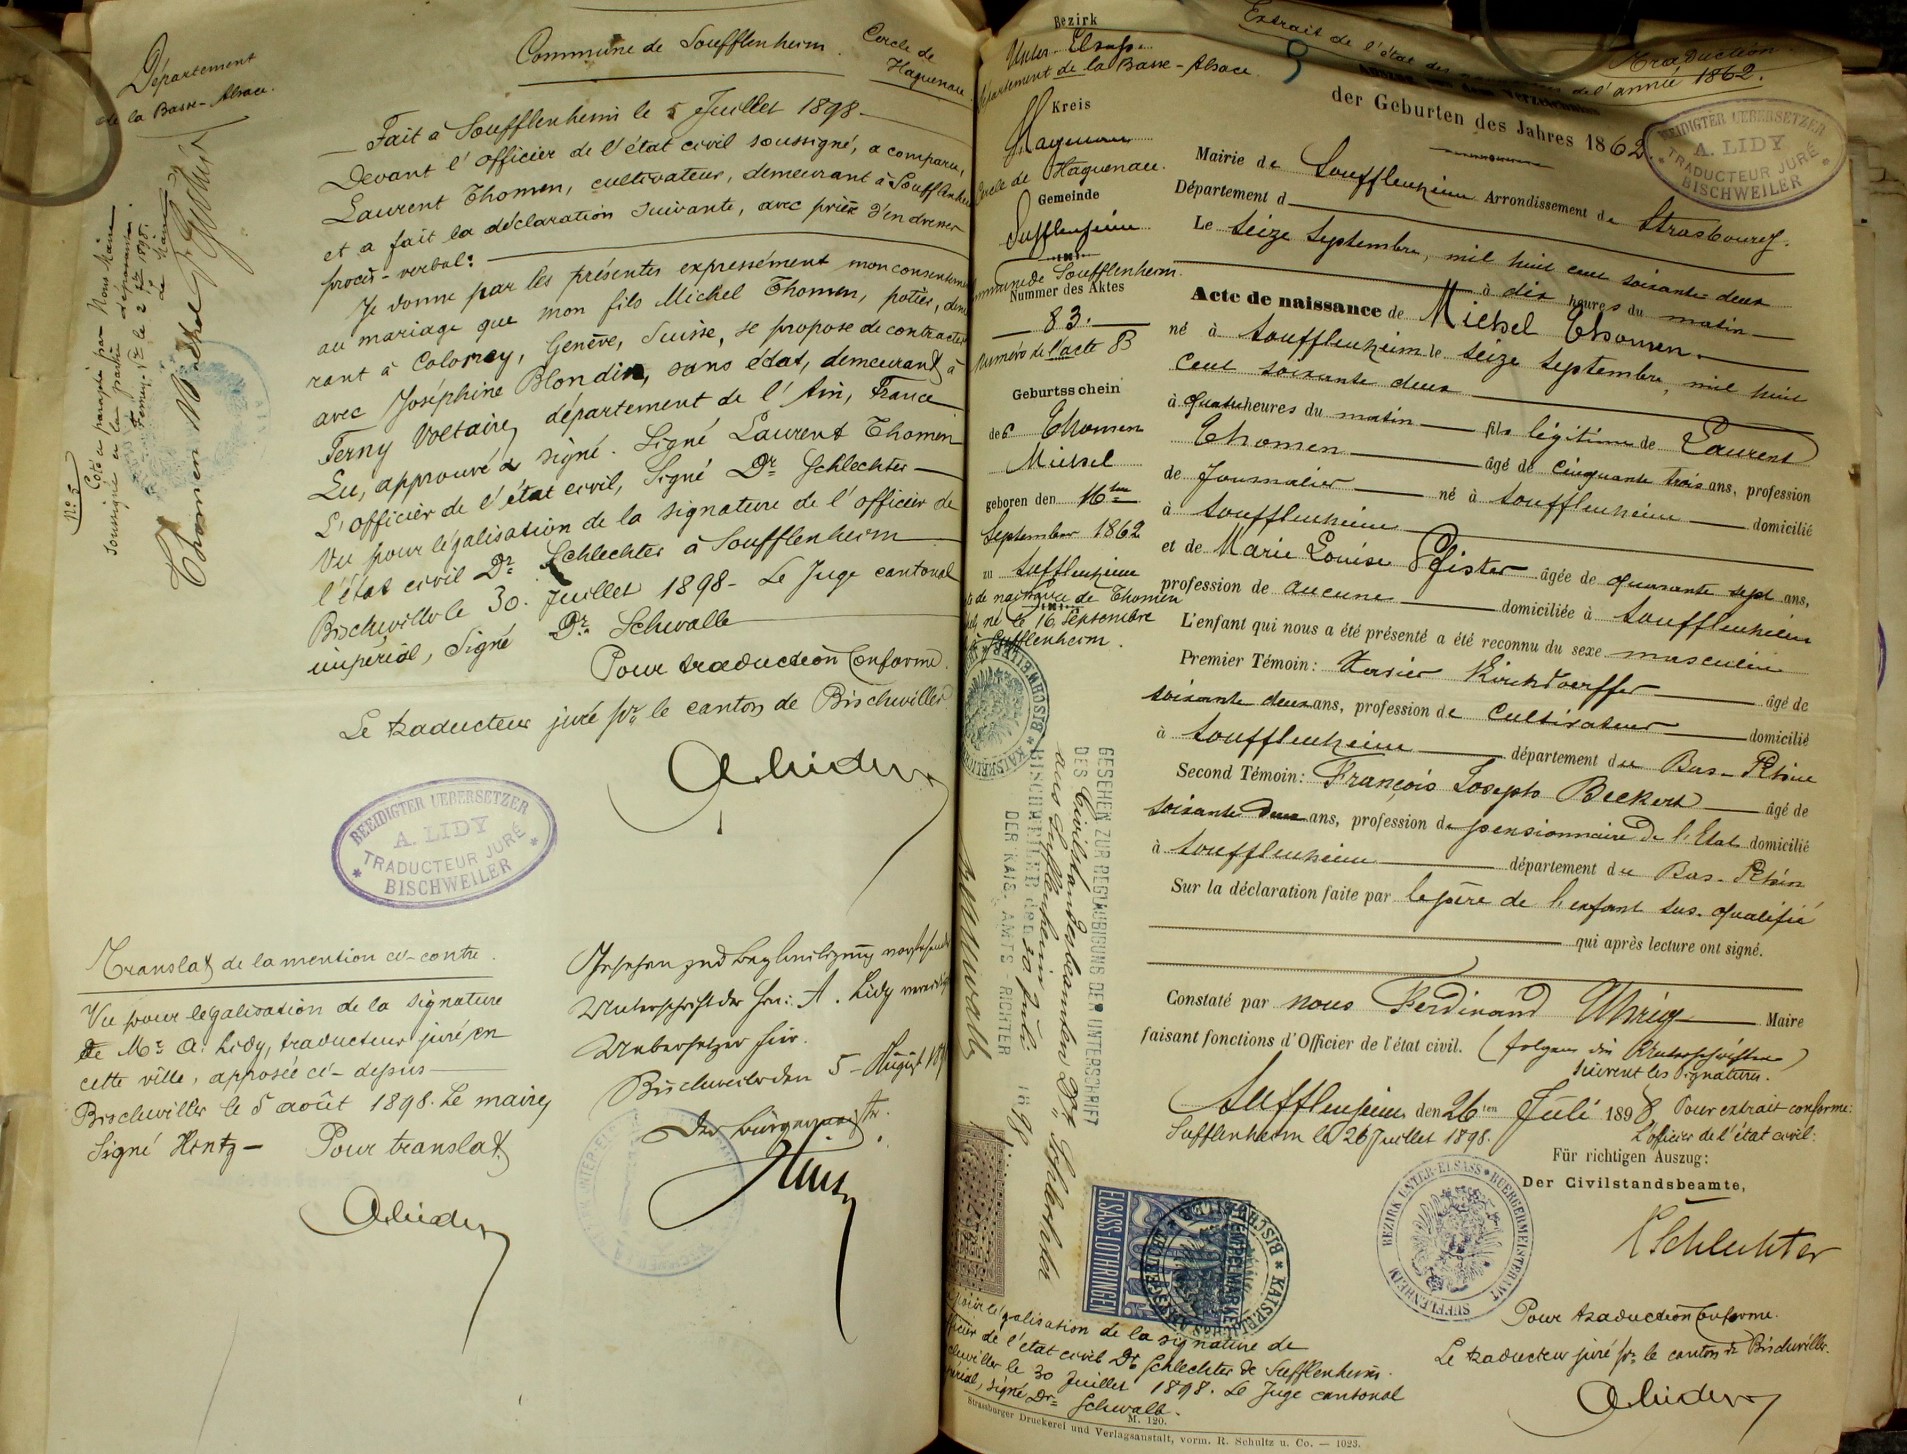 Département
de la Basse-Alsace.
Commune de Soufflenheim.
Cercle de
Haguenau.
Fait à Soufflenheim le 5 Juillet 1898
Devant l'officier de l'état civil soussigné, a comparu,
Laurent Thomen, cultivateur, demeurant à Soufflenheim
et a fait la déclaration suivante, avec prière d'en dresser
procès-verbal:
Je donne par les présentes expressément mon consentement
au mariage que mon fils Michel Thomen, potier, demeu
rant à Colovrey, Genève, Suisse, se propose de contracter
avec Joséphine Blondin, sans état, demeurant à
Ferny Voltaire, département de l'Ain, France
Lu, approuvé & signé. Signé Laurent Thomen
L'officier de l'état civil, Signé Dr. Schlechter
Vu pour légalisation de la signature de l'officier de
l'état civil Dr. Schlechter à Soufflenheim
Bischwiller le 30. Juillet 1898 - Le Juge cantonal
impérial, Signé Dr. Schwalb
Pour traduction conforme.
Le traducteur juré pr. le canton de Bischwiller.
A. Lidy
BEEIDIGTER UEBERSETZER
A. LIDY
TRADUCTEUR JURÉ
* BISCHWEILER *
No. 5
Coté et paraphé par Nous Maire
soussigné et la partie déposante.
Ferney, le 2 7bre 1898.
Le Maire
Thomen Michel
Translat de la mention ci-contre.
Vu pour légalisation de la signature
de Mr. A. Lidy, traducteur juré en
cette ville, apposée ci-dessus
Bischwiller le 5 août 1898. Le maire,
Signé Hintz - Pour translat
A. Lidy
Gesehen zur Beglaubigung vorstehender
Unterschrift des Hrn. A. Lidy vereidigt
Uebersetzer hier.
Bischweiler den 5 August 1898
Der Bürgermeister.
Bezirk
Unter-Elsass
Département de la Basse-Alsace.
Kreis
Hagenau
Cercle de Haguenau.
Gemeinde
Sufflenheim
Commune de Soufflenheim.
Nummer des Aktes
83.
Numéro de l'acte 83
Geburtsschein
des Thomen
Michel
geboren den 16ten
September 1862
zu Sufflenheim
Acte de naissance de Thomen
Michel, né le 16 Septembre
à Sufflenheim.
Extrait de l'état des naissances de l'année 1862.
Traduction.
9
Auszug aus dem Verzeichniss
der Geburten des Jahres 1862.
BEEIDIGTER UEBERSETZER
A. LIDY
TRADUCTEUR JURÉ
BISCHWEILER
Mairie de Soufflenheim Arrondissement de Strasbourg.
Département d
Le seize Septembre, mil huit cent soixante-deux
à dix heures du matin
Acte de naissance de Michel Thomen.
né à Soufflenheim le seize Septembre, mil huit
cent soixante deux
à quatre heures du matin fils légitime de Laurent
Thomen âgé de cinquante trois ans, profession
de Journalier né à Soufflenheim domicilié
à Soufflenheim
et de Marie Louise Pfister âgée de quarante sept ans,
profession de aucune domiciliée à Soufflenheim
L'enfant qui nous a été présenté a été reconnu du sexe masculin
Premier Témoin: Xavier Kirchdoerffer âgé de
soixante deux ans, profession de cultivateur domicilié
à Soufflenheim département du Bas-Rhin
Second Témoin: François Joseph Beckert âgé de
soixante deux ans, profession de pensionnaire de l'Etat domicilié
à Soufflenheim département du Bas-Rhin
Sur la déclaration faite par le père de l'enfant sus-qualifié
qui après lecture ont signé.
Constaté par nous Ferdinand Uhrig Maire
faisant fonctions d'Officier de l'état civil. (folgen die Unterschriften)
suivent les signatures.
Sufflenheim den 26ten Juli 1898 Pour extrait conforme:
Sufflenheim le 26 Juillet 1898. L'officier de l'état civil:
Für richtigen Auszug:
Der Civilstandsbeamte,
Schlechter
BEZIRK UNTER-ELSASS * BUERGERMEISTERAMT SUFFLENHEIM
Pour traduction conforme.
Le traducteur juré pr. le canton de Bischwiller.
A. Lidy
GESEHEN ZUR BEGLAUBIGUNG DER UNTERSCHRIFT
DES Civilstandesbeamten Dr. Schlechter
aus Sufflenheim
BISCHWEILER den 30 Juli 1898
DER KAIS. AMTS-RICHTER
Schwalb
ELSASS-LOTHRINGEN
STEMPELMARKE
KAISERLICHES AMTSGERICHT * BISCHWEILER *
Vu pour légalisation de la signature de
l'officier de l'état civil Dr. Schlechter de Sufflenheim.
Bischwiller le 30 Juillet 1898. Le Juge cantonal
impérial, signé Dr. Schwalb.
M. 120.
Strassburger Druckerei und Verlagsanstalt, vorm. R. Schultz u. Co. — 1023.